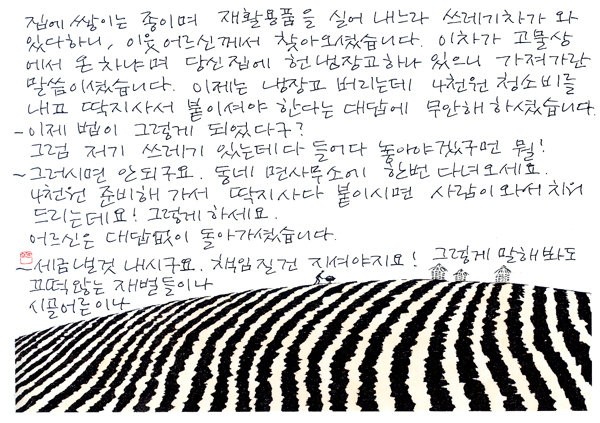 집에 쌓이는 종이며 재활용품을 실어 내느라 쓰레기차가 와
있다하니, 이웃 어르신께서 찾아오셨습니다. 이차가 고물상
에서 온 차냐며 당신집에 헌 냉장고하나 있으니 가져가란
말씀이셨습니다. 이제는 냉장고 버리는데 4천원 청소비를
내고 딱지사서 붙이셔야 한다는 대답에 무안해 하셨습니다.
~이제 법이 그렇게 되었다구?
그럼 저기 쓰레기 있는데다 들어다 놓아야겠구먼 뭘!
~그러시면 안되구요. 동네 면사무소에 한번 다녀오세요.
4천원 준비해 가서 딱지사다 붙이시면 사람이와서 치워
드리는데요! 그렇게 하세요.
어르신은 대답없이 돌아가셨습니다.
~세금낼것 내시구요. 책임질건 지셔야지요! 그렇게 말해봐도
끄떡않는 재벌들이나
시골어른이나